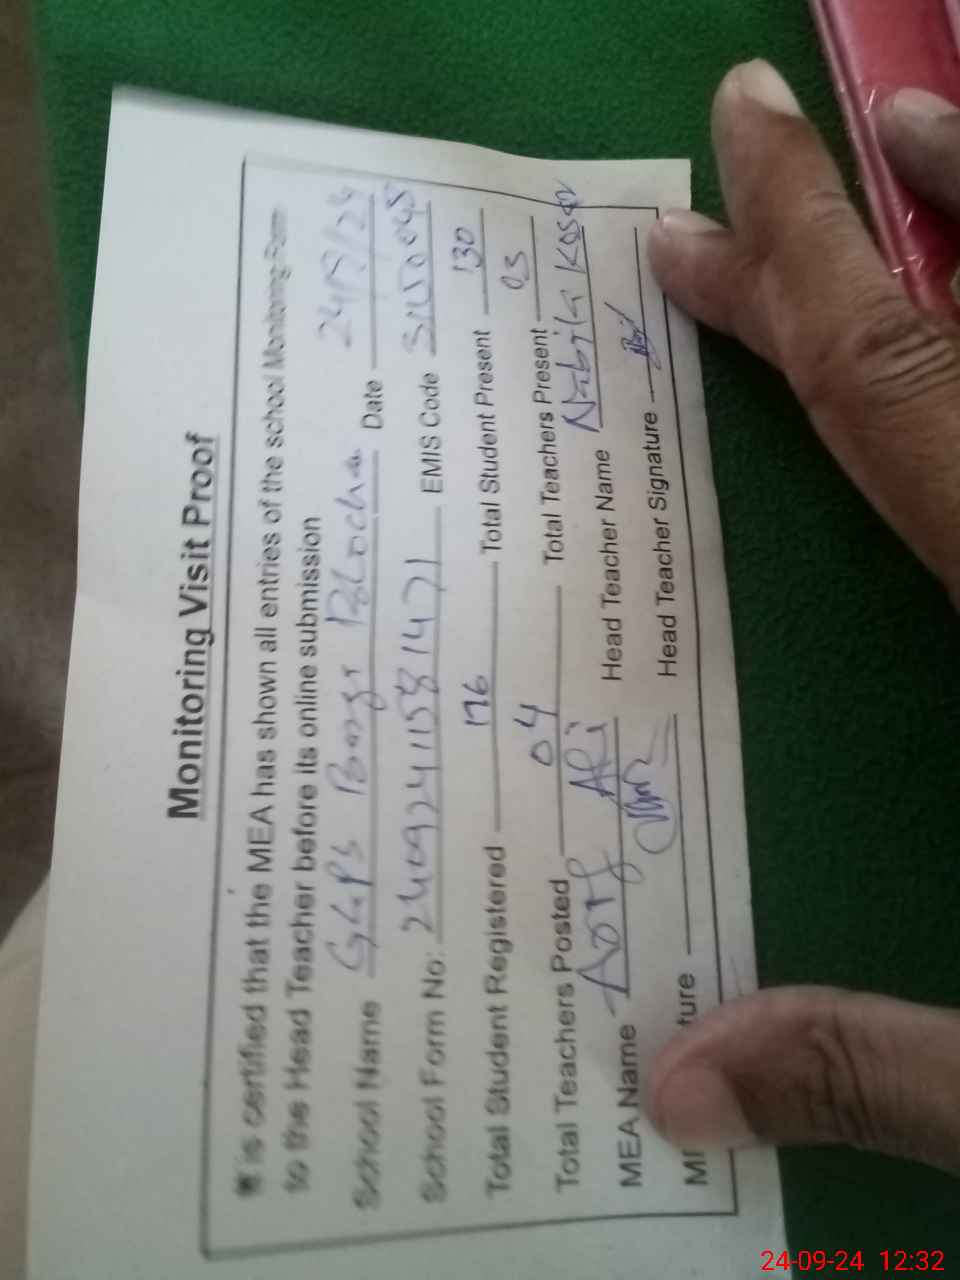 Monitoring Visit Proof
It is certified that the MEA has shown all entries of the school Monitoring Form
to the Head Teacher before its online submission
School Name GGPS Bangr Blocha Date 24/9/24
School Form No: EMIS Code
Total Student Registered 176 Total Student Present 130
Total Teachers Posted 04 Total Teachers Present 03
MEA Name Ali Head Teacher Name Nabila Kosar
ture Head Teacher Signature
24-09-24 12:32